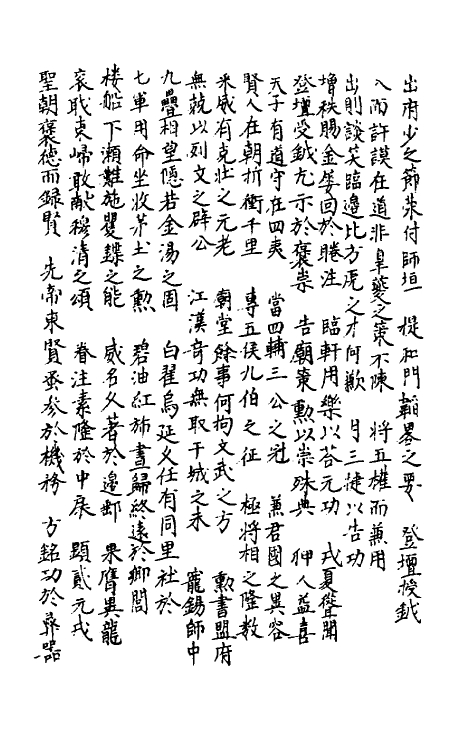 出府少之節榮付師垣　提和門韜畧之要　登壇授鉞
入而訏謨在道非皐夔之策不陳　將五權而兼用
出則談笑臨邊比方虎之才何歉　月三捷以告功
增秩賜金曼回於睠注　臨軒用樂以荅元功　戎夏聳聞
登壇受鉞尤示於褒崇　告廟策勳以崇殊典　神人益喜
天子有道守在四夷　當四輔三公之冠　兼君國之異容
賢人在朝折衝千里　專五侯九伯之征　極將相之隆數
采威有克壯之元老　廟堂餘事何拘文武之方　勲書盟府
無兢以刻文之辟公　江漢竒功無取干城之未　寵錫師中
九疊相望隱若金湯之固　白翟烏延乂任有同里社於
七軍用命坐收茅土之勲　碧油紅斾晝歸終遠於鄉閭
樓船下瀨難施矍鑠之能　威名久著於邊郵　果膺異寵
衮職東歸敢獻穆清之頌　眷注素隆於中扆　顯貳元戎
聖朝褒德而録賢　先帝東賢丞参於機務　方銘功於彞器